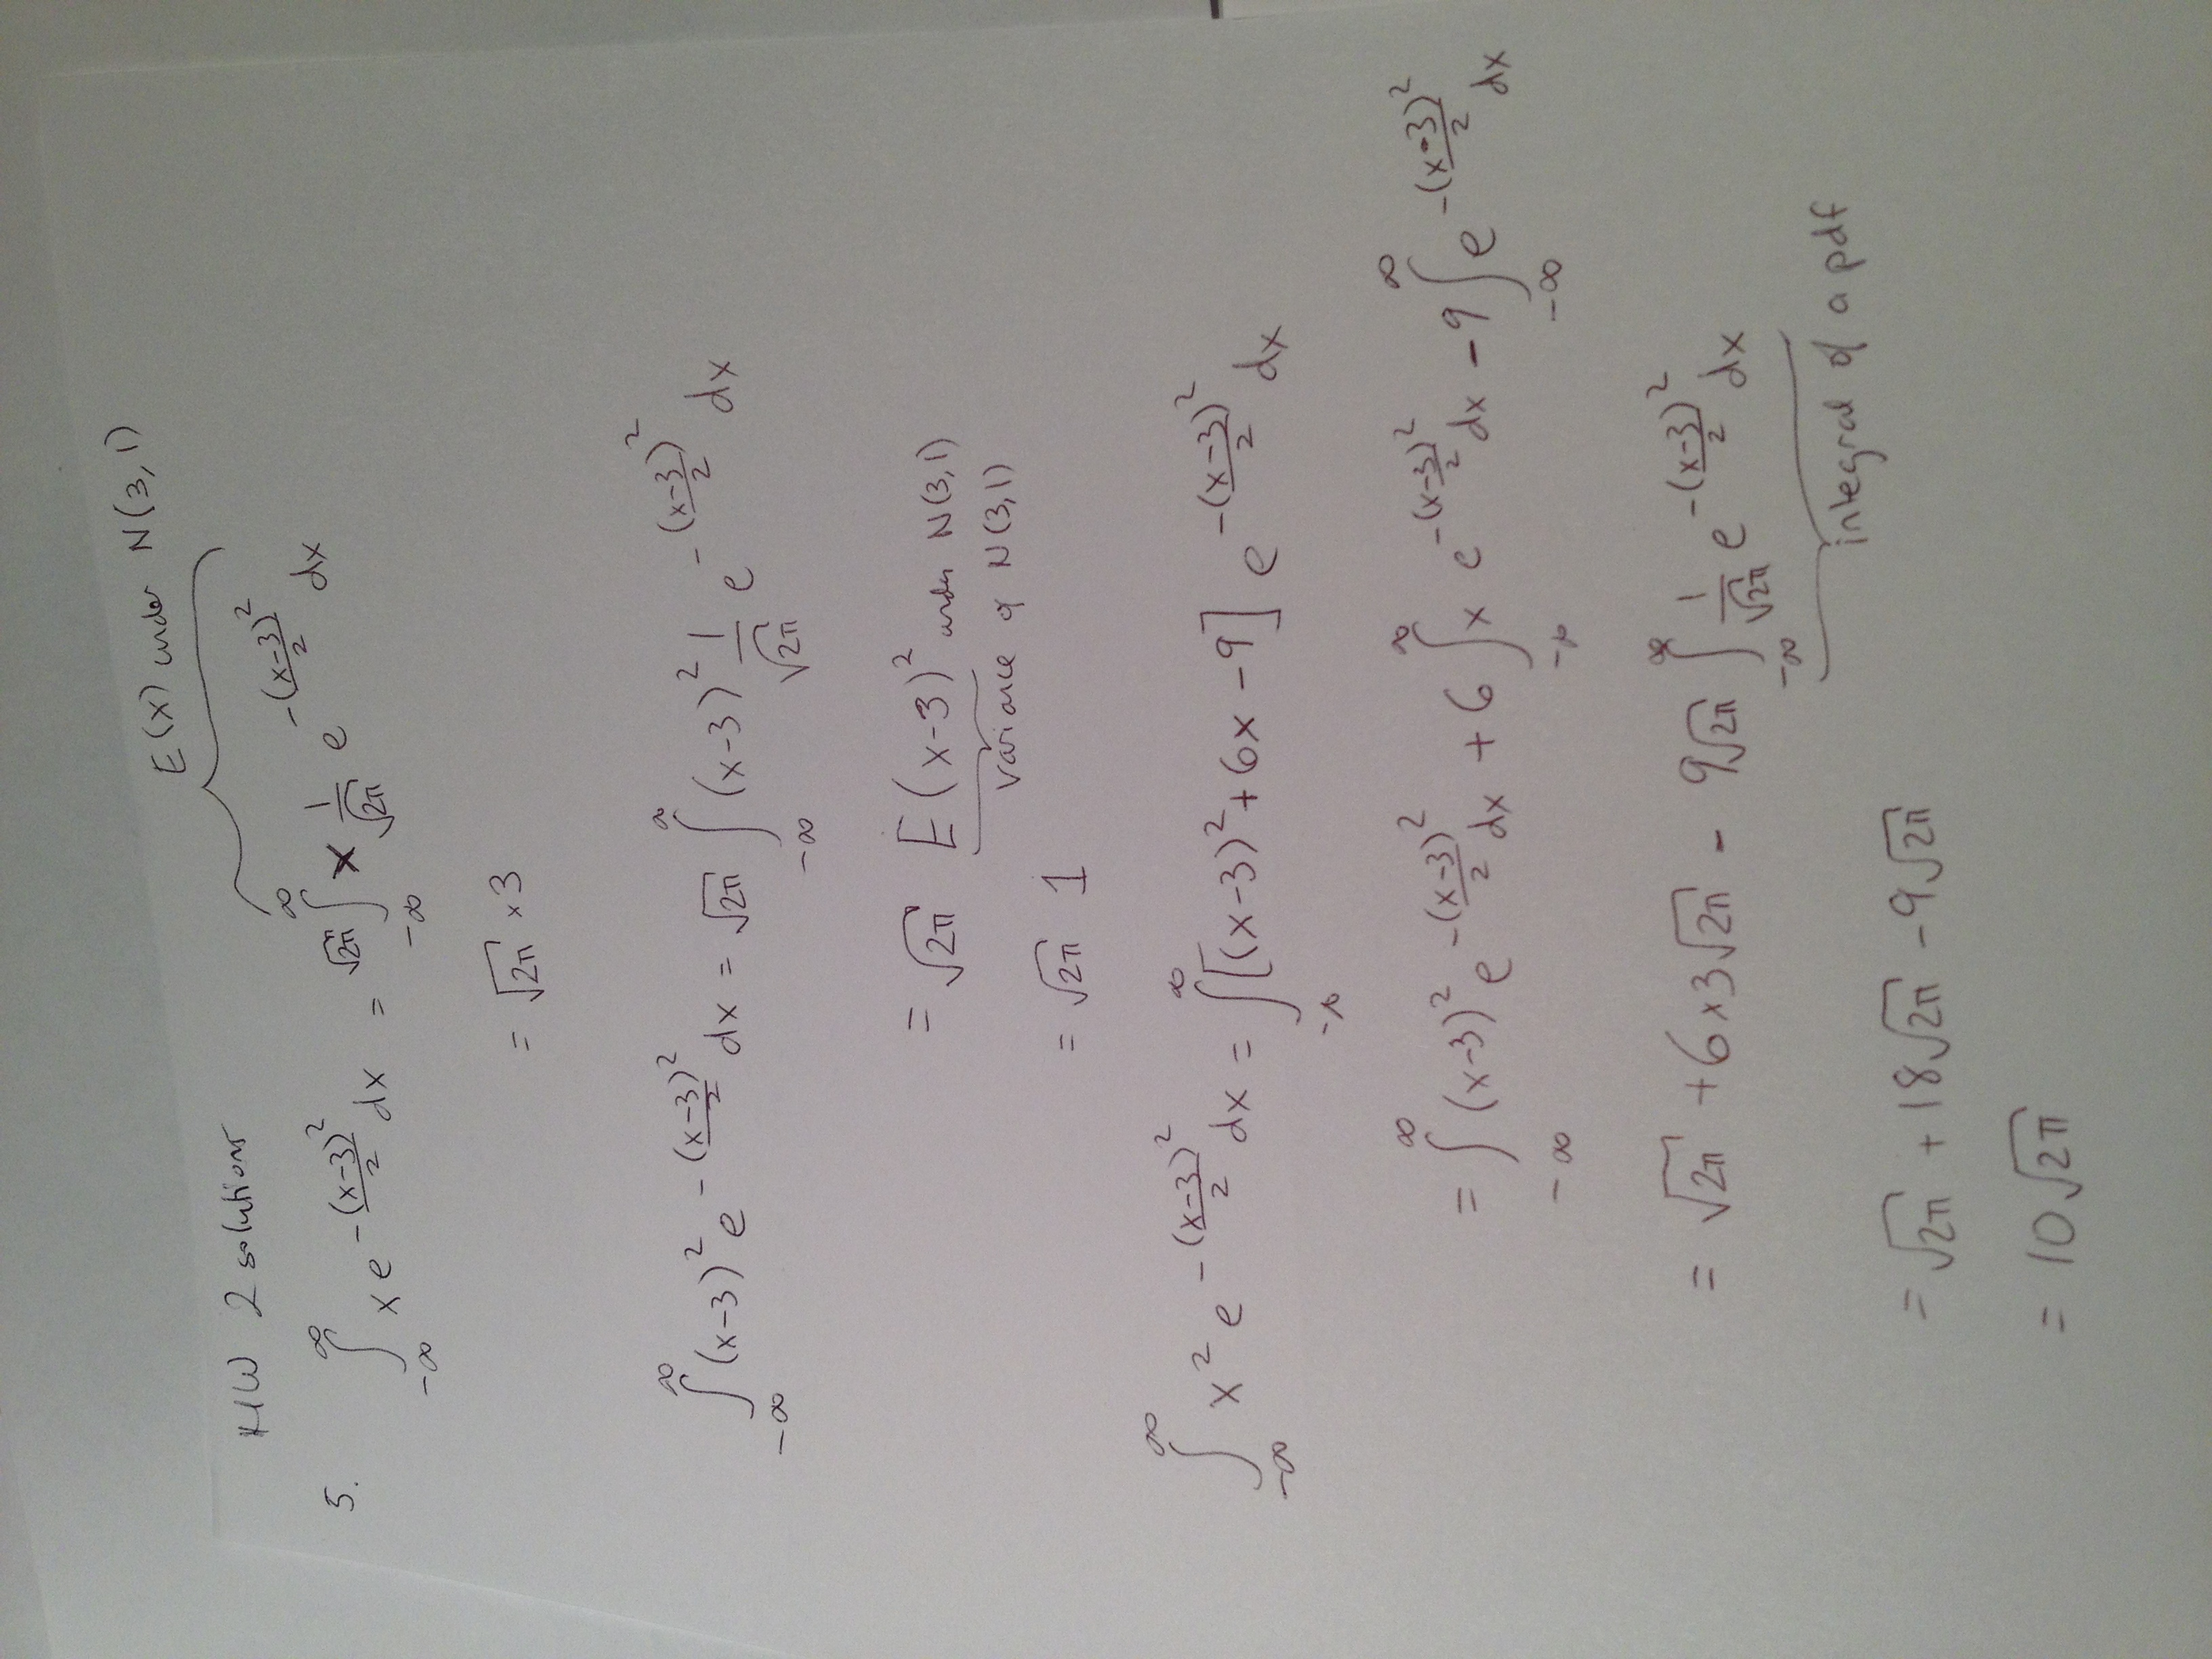 E(x) under N(3,1)
HW 2 solutions
5. ∫_{-∞}^{∞} x e^{-(x-3)²/2} dx = √2π ∫_{-∞}^{∞} x 1/√2π e^{-(x-3)²/2} dx
= √2π × 3
∫_{-∞}^{∞} (x-3)² e^{-(x-3)²/2} dx = √2π ∫_{-∞}^{∞} (x-3)² 1/√2π e^{-(x-3)²/2} dx
= √2π E(x-3)² under N(3,1)
variance of N(3,1)
= √2π 1
∫_{-∞}^{∞} x² e^{-(x-3)²/2} dx = ∫_{-∞}^{∞} [(x-3)² + 6x - 9] e^{-(x-3)²/2} dx
= ∫_{-∞}^{∞} (x-3)² e^{-(x-3)²/2} dx + 6 ∫_{-∞}^{∞} x e^{-(x-3)²/2} dx - 9 ∫_{-∞}^{∞} e^{-(x-3)²/2} dx
= √2π + 6×3√2π - 9√2π ∫_{-∞}^{∞} 1/√2π e^{-(x-3)²/2} dx
integral of a pdf
= √2π + 18√2π - 9√2π
= 10√2π